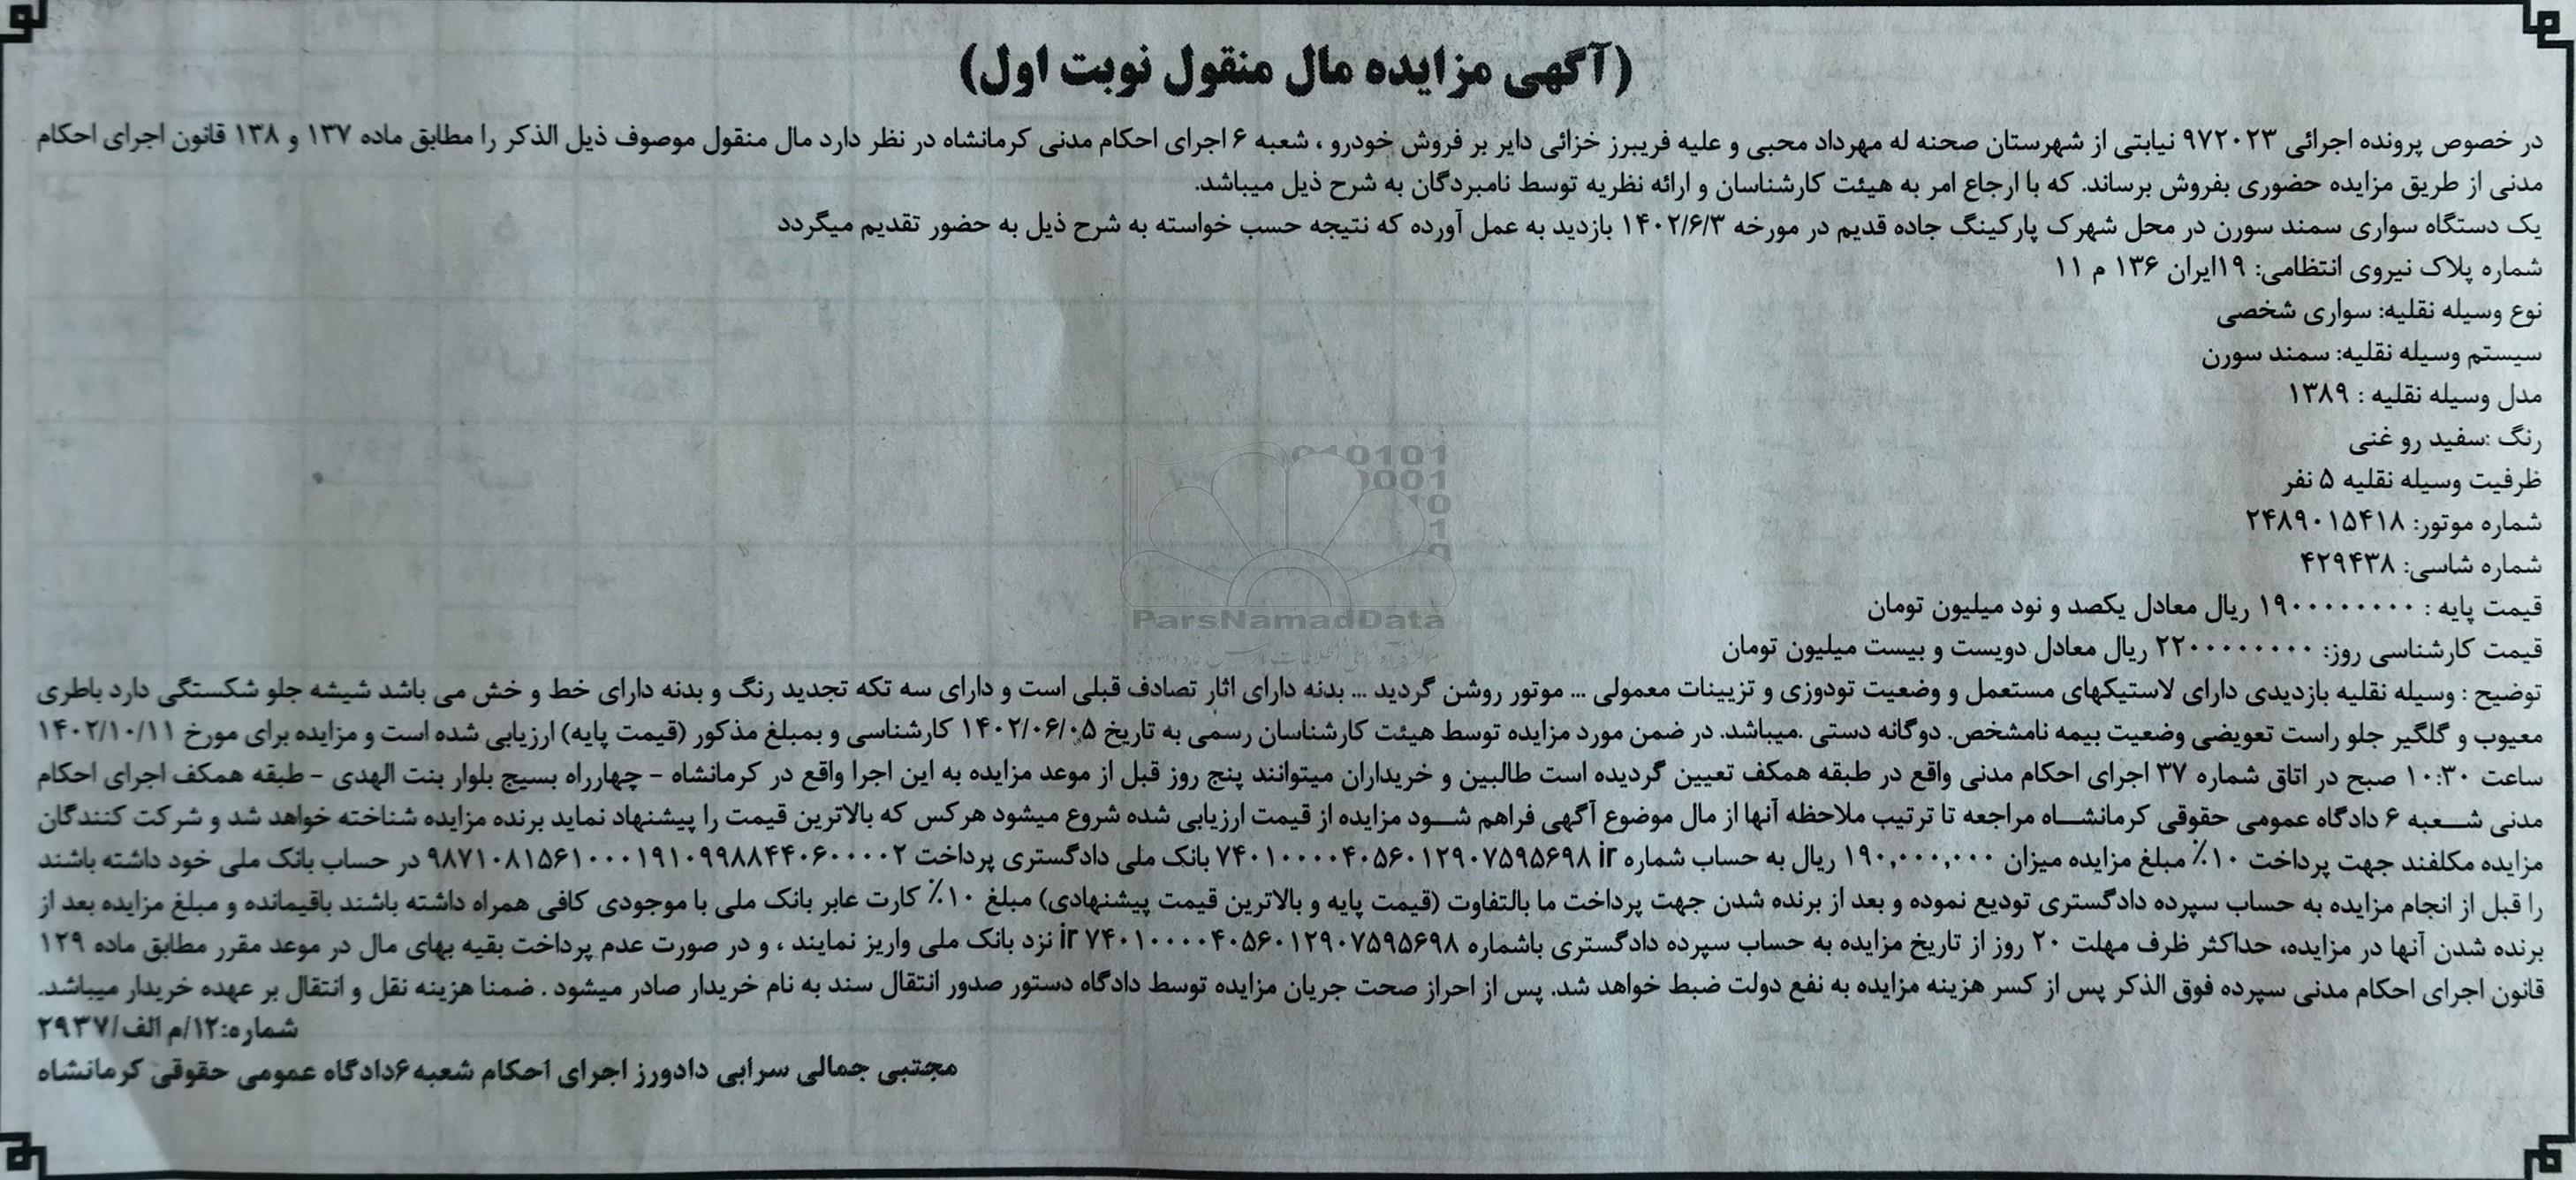 (آگهی مزایده مال منقول نوبت اول)
در خصوص پرونده اجرائی ۹۷۲۰۲۳ نیابتی از شهرستان صحنه له مهرداد محبی و علیه فریبرز خزائی دایر بر فروش خودرو ، شعبه ۶ اجرای احکام مدنی کرمانشاه در نظر دارد مال منقول موصوف ذیل الذکر را مطابق ماده ۱۳۷ و ۱۳۸ قانون اجرای احکام
مدنی از طریق مزایده حضوری بفروش برساند. که با ارجاع امر به هیئت کارشناسان و ارائه نظریه توسط نامبردگان به شرح ذیل میباشد.
یک دستگاه سواری سمند سورن در محل شهرک پارکینگ جاده قدیم در مورخه ۱۴۰۲/۶/۳ بازدید به عمل آورده که نتیجه حسب خواسته به شرح ذیل به حضور تقدیم میگردد
شماره پلاک نیروی انتظامی: ۱۹ایران ۱۳۶ م ۱۱
نوع وسیله نقلیه: سواری شخصی
سیستم وسیله نقلیه: سمند سورن
مدل وسیله نقلیه : ۱۳۸۹
رنگ :سفید رو غنی
ظرفیت وسیله نقلیه ۵ نفر
شماره موتور: ۲۴۸۹۰۱۵۴۱۸
شماره شاسی: ۴۲۹۴۳۸
قیمت پایه : ۱۹۰۰۰۰۰۰۰۰ ریال معادل یکصد و نود میلیون تومان
قیمت کارشناسی روز: ۲۲۰۰۰۰۰۰۰۰ ریال معادل دویست و بیست میلیون تومان
توضیح : وسیله نقلیه بازدیدی دارای لاستیکهای مستعمل و وضعیت تودوزی و تزیینات معمولی ... موتور روشن گردید ... بدنه دارای اثار تصادف قبلی است و دارای سه تکه تجدید رنگ و بدنه دارای خط و خش می باشد شیشه جلو شکستگی دارد باطری
معیوب و گلگیر جلو راست تعویضی وضعیت بیمه نامشخص. دوگانه دستی .میباشد. در ضمن مورد مزایده توسط هیئت کارشناسان رسمی به تاریخ ۱۴۰۲/۰۶/۰۵ کارشناسی و بمبلغ مذکور (قیمت پایه) ارزیابی شده است و مزایده برای مورخ ۱۴۰۲/۱۰/۱۱
ساعت ۱۰:۳۰ صبح در اتاق شماره ۳۷ اجرای احکام مدنی واقع در طبقه همکف تعیین گردیده است طالبین و خریداران میتوانند پنج روز قبل از موعد مزایده به این اجرا واقع در کرمانشاه - چهارراه بسیج بلوار بنت الهدی - طبقه همکف اجرای احکام
مدنی شعبه ۶ دادگاه عمومی حقوقی کرمانشاه مراجعه تا ترتیب ملاحظه آنها از مال موضوع آگهی فراهم شود مزایده از قیمت ارزیابی شده شروع میشود هرکس که بالاترین قیمت را پیشنهاد نماید برنده مزایده شناخته خواهد شد و شرکت کنندگان
مزایده مکلفند جهت پرداخت ۱۰٪ مبلغ مزایده میزان ۱۹۰,۰۰۰,۰۰۰ ریال به حساب شماره ir ۷۴۰۱۰۰۰۰۴۰۵۶۰۱۲۹۰۷۵۹۵۶۹۸ بانک ملی دادگستری پرداخت ۹۸۷۱۰۸۱۵۶۱۰۰۰۱۹۱۰۹۹۸۸۴۴۰۶۰۰۰۰۲ در حساب بانک ملی خود داشته باشند
را قبل از انجام مزایده به حساب سپرده دادگستری تودیع نموده و بعد از برنده شدن جهت پرداخت ما بالتفاوت (قیمت پایه و بالاترین قیمت پیشنهادی) مبلغ ۱۰٪ کارت عابر بانک ملی با موجودی کافی همراه داشته باشند باقیمانده و مبلغ مزایده بعد از
برنده شدن آنها در مزایده، حداکثر ظرف مهلت ۲۰ روز از تاریخ مزایده به حساب سپرده دادگستری باشماره ir ۷۴۰۱۰۰۰۰۴۰۵۶۰۱۲۹۰۷۵۹۵۶۹۸ نزد بانک ملی واریز نمایند ، و در صورت عدم پرداخت بقیه بهای مال در موعد مقرر مطابق ماده ۱۲۹
قانون اجرای احکام مدنی سپرده فوق الذکر پس از کسر هزینه مزایده به نفع دولت ضبط خواهد شد. پس از احراز صحت جریان مزایده توسط دادگاه دستور صدور انتقال سند به نام خریدار صادر میشود . ضمنا هزینه نقل و انتقال بر عهده خریدار میباشد.
شماره:۱۲/م الف/۲۹۳۷
مجتبی جمالی سرابی دادورز اجرای احکام شعبه۶دادگاه عمومی حقوقی کرمانشاه
ParsNamadData